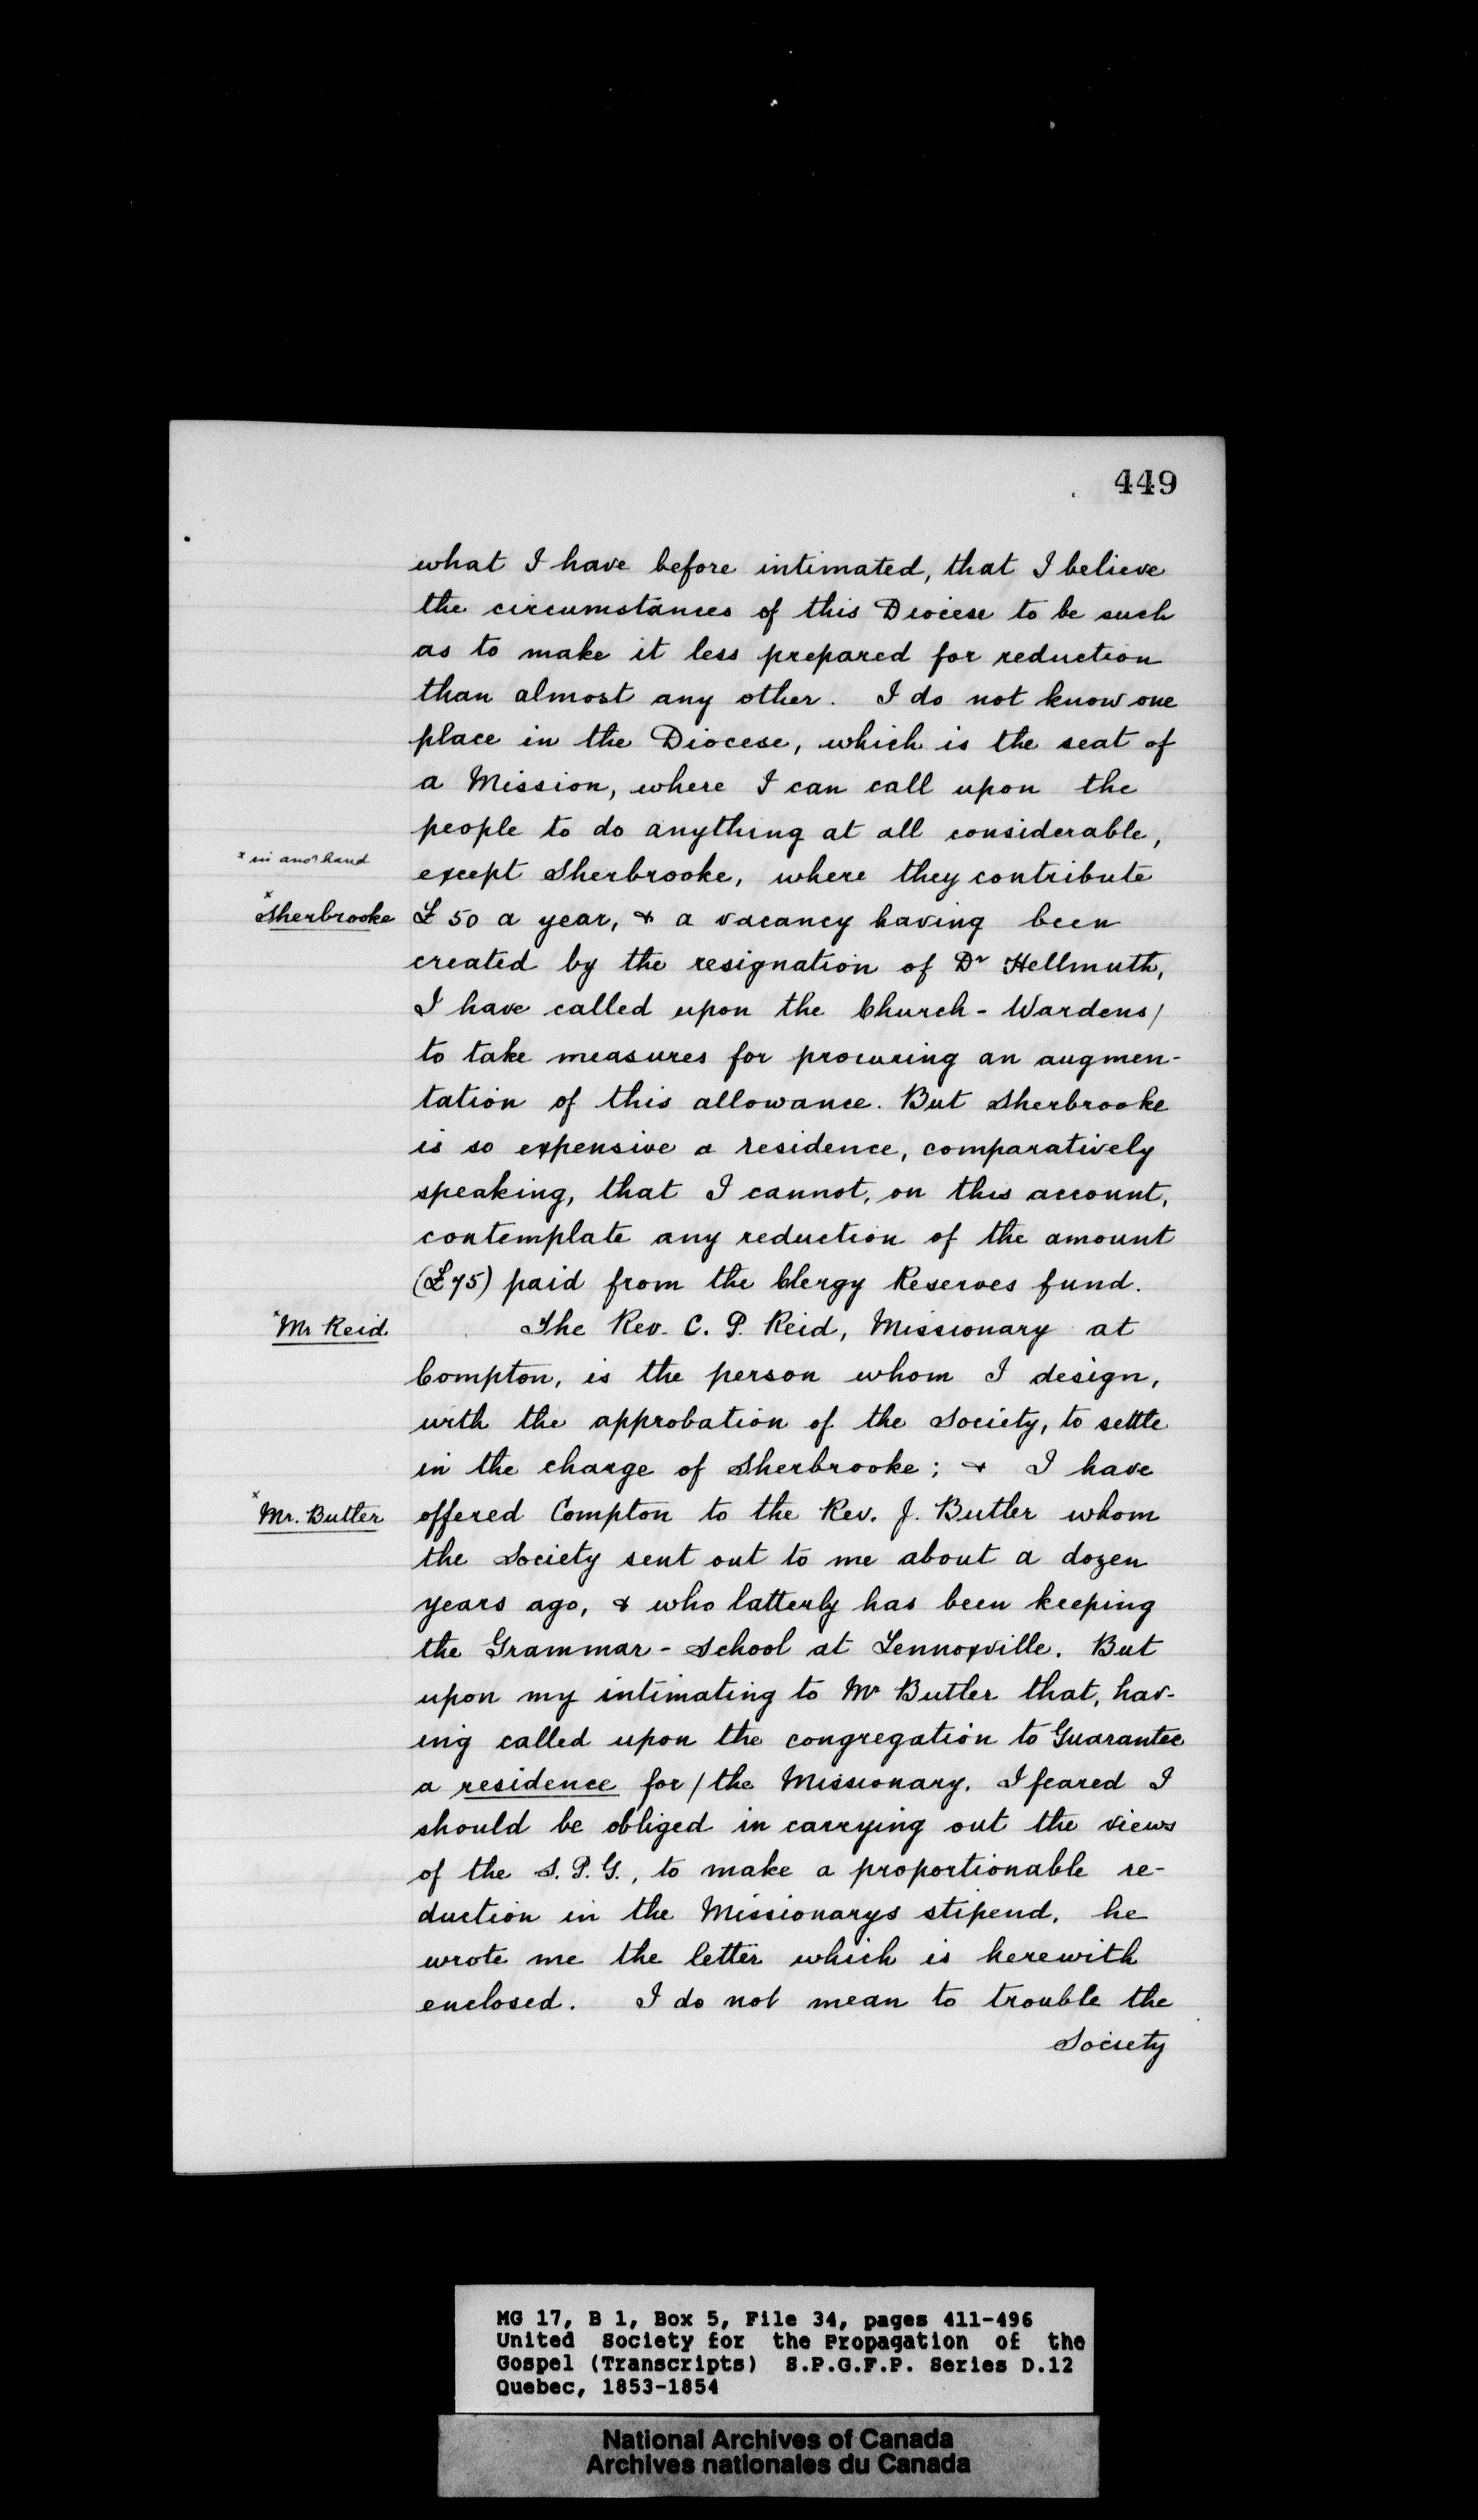 449
what I have before intimated, that I believe
the circumstances of this Diocese to be such
as to make it less prepared for reduction
than almost any other. I do not know one
place in the Diocese, which is the seat of
a Mission, where I can call upon the
people to do anything at all considerable,
x in anor hand
except Sherbrooke, where they contribute
x
Sherbrooke
£ 50 a year, & a vacancy having been
created by the resignation of Dr Hellmuth,
I have called upon the Church-Wardens/
to take measures for procuring an augmen-
tation of this allowance. But Sherbrooke
is so expensive a residence, comparatively
speaking, that I cannot, on this account,
contemplate any reduction of the amount
(£75) paid from the Clergy Reserves fund.
x Mr Reid
The Rev. C. P. Reid, Missionary at
Compton, is the person whom I design,
with the approbation of the Society, to settle
in the charge of Sherbrooke; & I have
x Mr. Butler
offered Compton to the Rev. J. Butler whom
the Society sent out to me about a dozen
years ago, & who latterly has been keeping
the Grammar-School at Lennoxville. But
upon my intimating to Mr Butler that, hav-
ing called upon the congregation to Guarantee
a residence for/the Missionary, I feared I
should be obliged in carrying out the views
of the S. P. G., to make a proportionable re-
duction in the Missionarys stipend, he
wrote me the letter which is herewith
enclosed. I do not mean to trouble the
Society
MG 17, B 1, Box 5, File 34, pages 411-496
United Society for the Propagation of the
Gospel (Transcripts) S.P.G.F.P. Series D.12
Quebec, 1853-1854
National Archives of Canada
Archives nationales du Canada